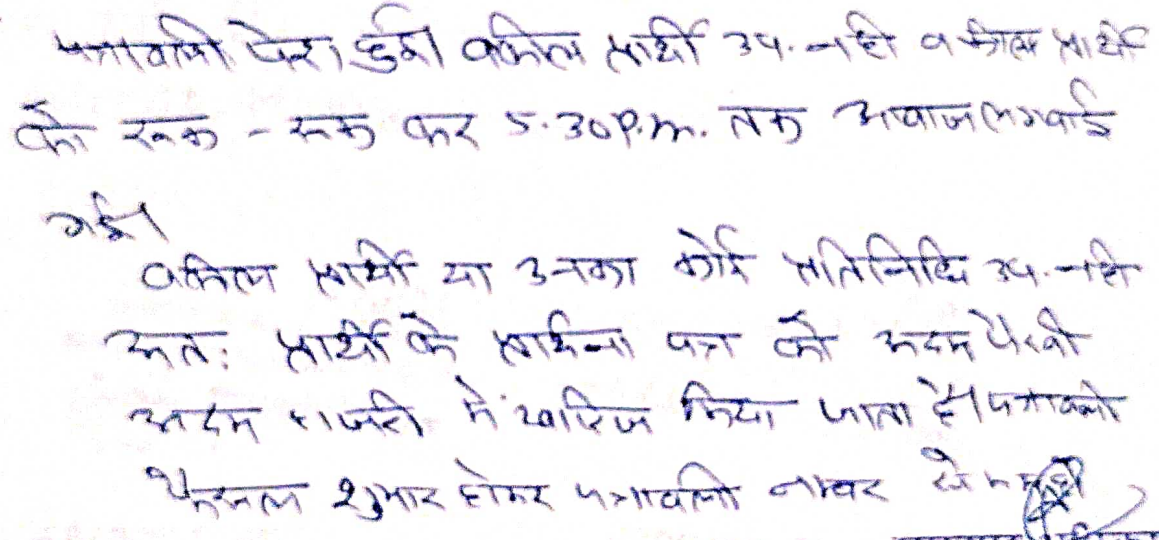 पत्रावली पेश हुई। वकिल प्रार्थी उप. नही वकील प्रार्थी
को रूक - रूक कर 5.30 P.m. तक आवाज लगवाई
गई।
वकिल प्रार्थी या उनका कोई प्रतिनिधि उप. नही
अतः प्रार्थी के प्रार्थना पत्र को अदम पैरवी
अदम हाजरी में खारिज किया जाता है। पत्रावली
फैसल शुमार होकर पत्रावली नम्बर से कम हो